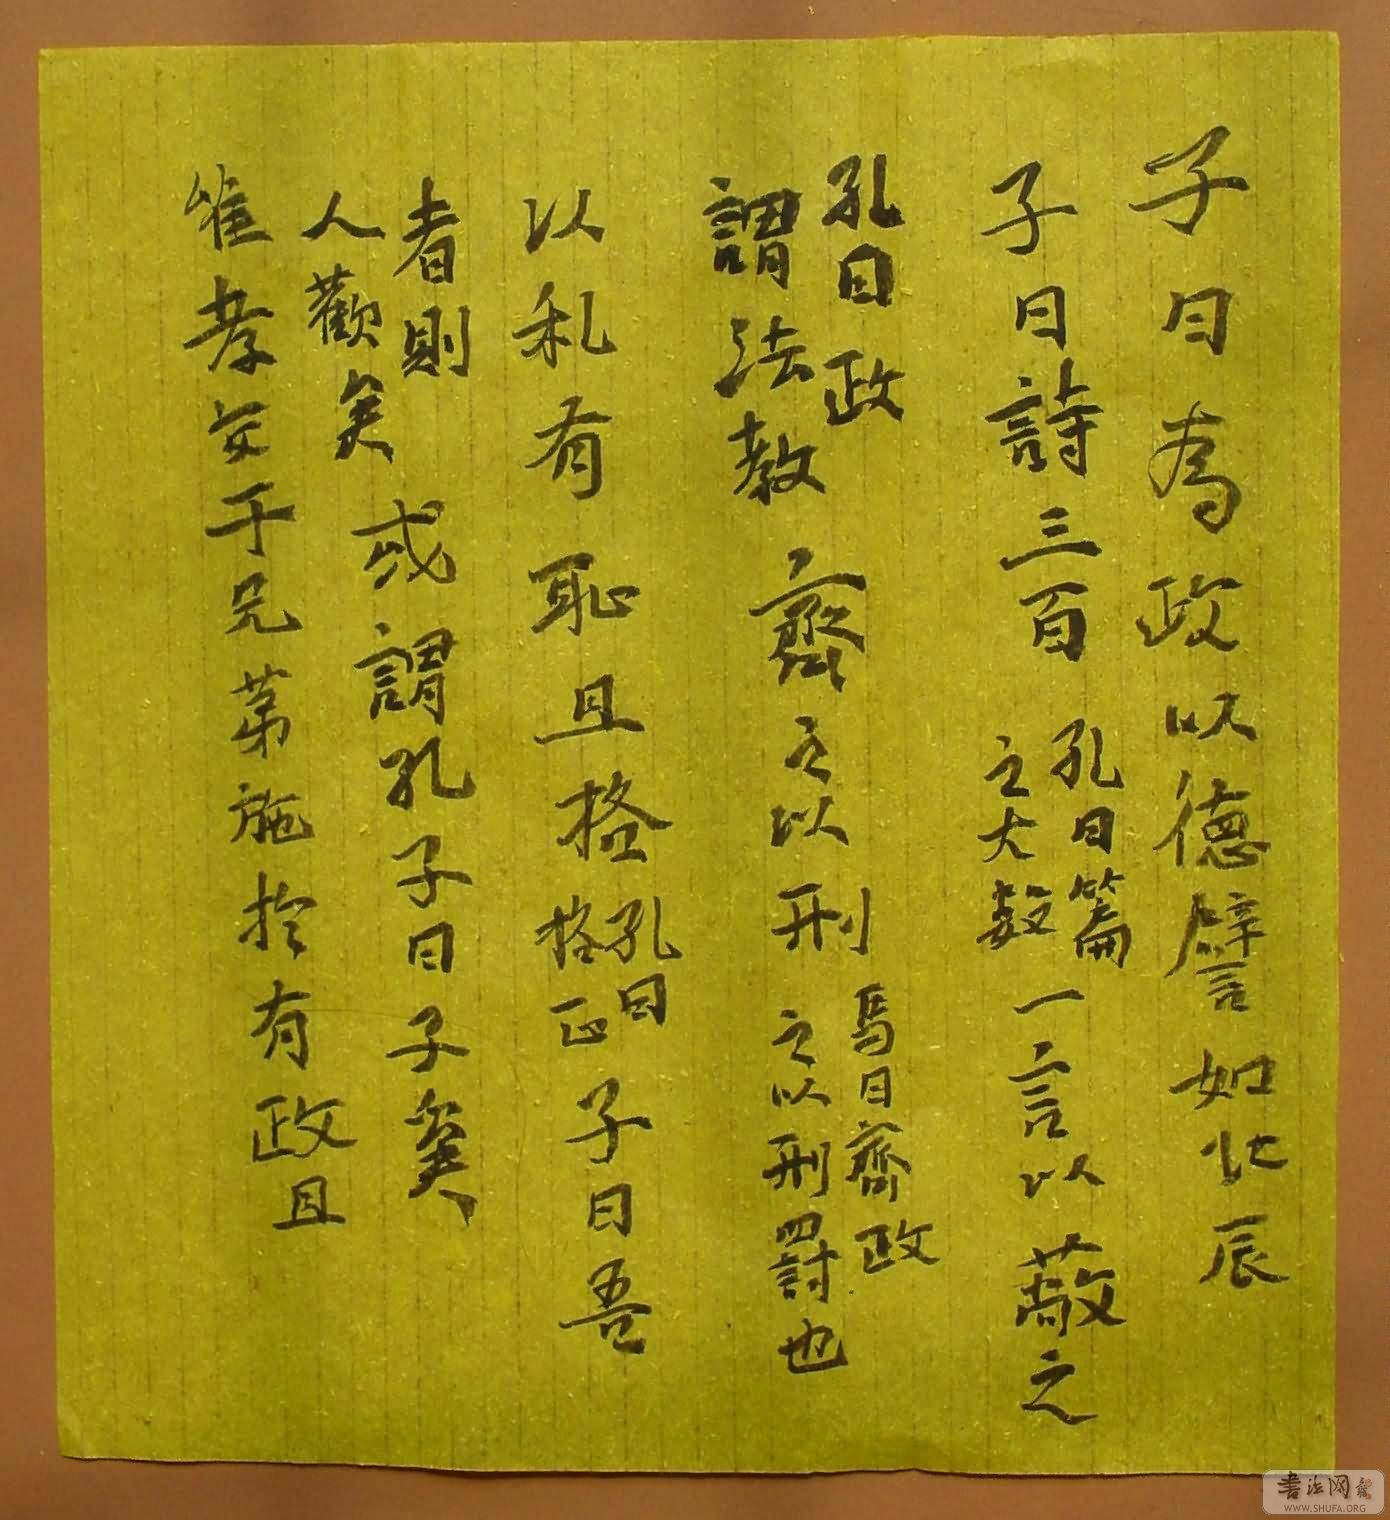 子曰為政以德譬如北辰
子曰詩三百
孔曰篇
之大数
一言以蔽之
孔曰政
謂法教
齊之以刑
馬曰齊政
之以刑罰也
以礼有恥且格
孔曰
格正
子曰吾
者則
人勸矣
或謂孔子曰子奚
惟孝友于兄弟施於有政且
書法网
WWW.SHUFA.ORG